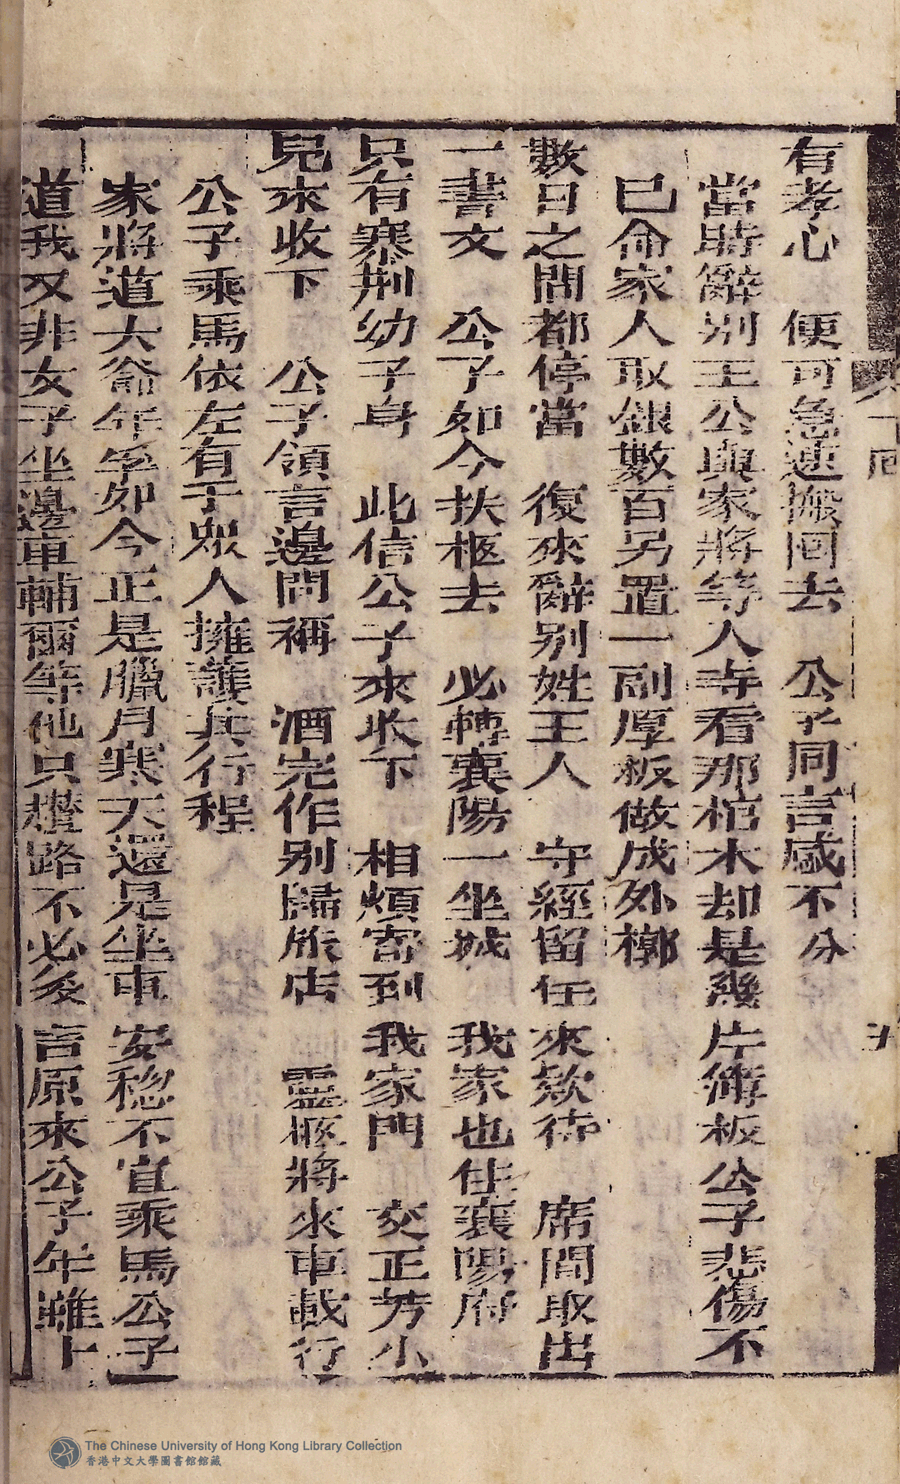 有孝心　便可急速搬回去　公子同言感不分
當時辭別王公與家將等人寺看那棺木却是幾片薄板公子悲傷不
已命家人取銀數百另置一副厚板做成外槨
數日之間都停當　復來辭別姓王人　守經留任來欵待　席間取出
一書文　公子如今扶柩去　必轉襄陽一坐城　我家也住襄陽府
只有寨荆幼子身　此信公子來收下　相煩寄到我家門　交正芳小
兒來收下　公子領言邊問稱　酒完作別歸旅店　靈柩將來車載行
公子乘馬依左右于眾人擁護共行程
家將道大爺年孚如今正是臘月寒天還是坐車安穏不宜乘馬公子
道我又非女子坐邊車輔爾等他只儧路不必多言原來公子年雖十
The Chinese University of Hong Kong Library Collection
香港中文大學圖書館館藏